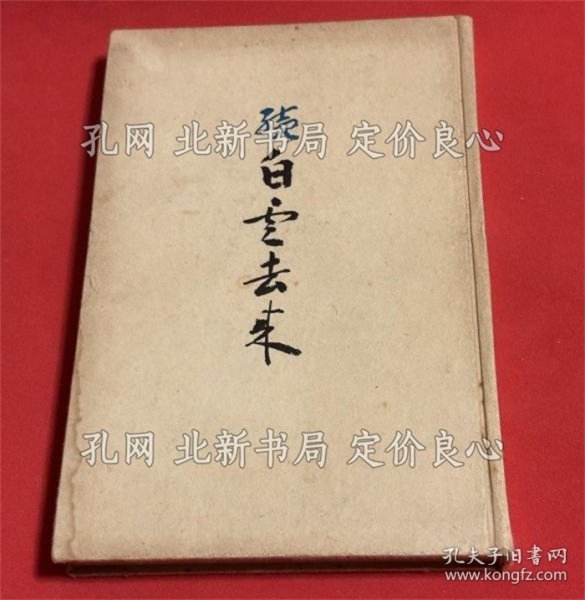 續
白雲去来
孔网 北新书局 定价良心
孔网 北新书局 定价良心
孔夫子旧书网
www.kongfz.com